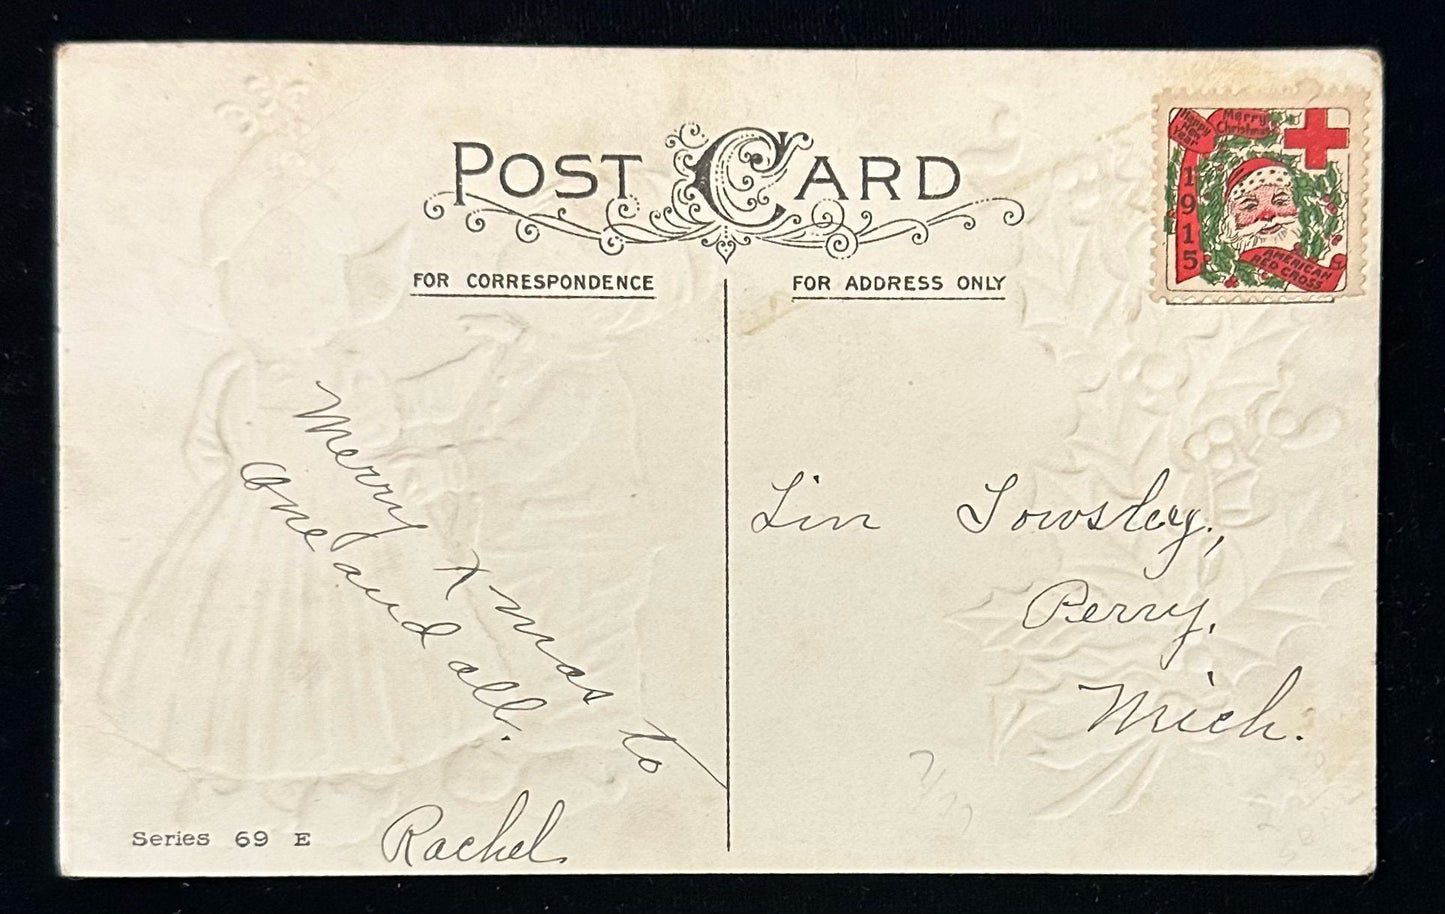 POST CARD
FOR CORRESPONDENCE
FOR ADDRESS ONLY
Happy
New
Year
Merry
Christmas
1915
AMERICAN
RED CROSS
Merry Xmas to
one and all.
Rachel
Lin Towsley,
Perry,
Mich.
Series 69 E